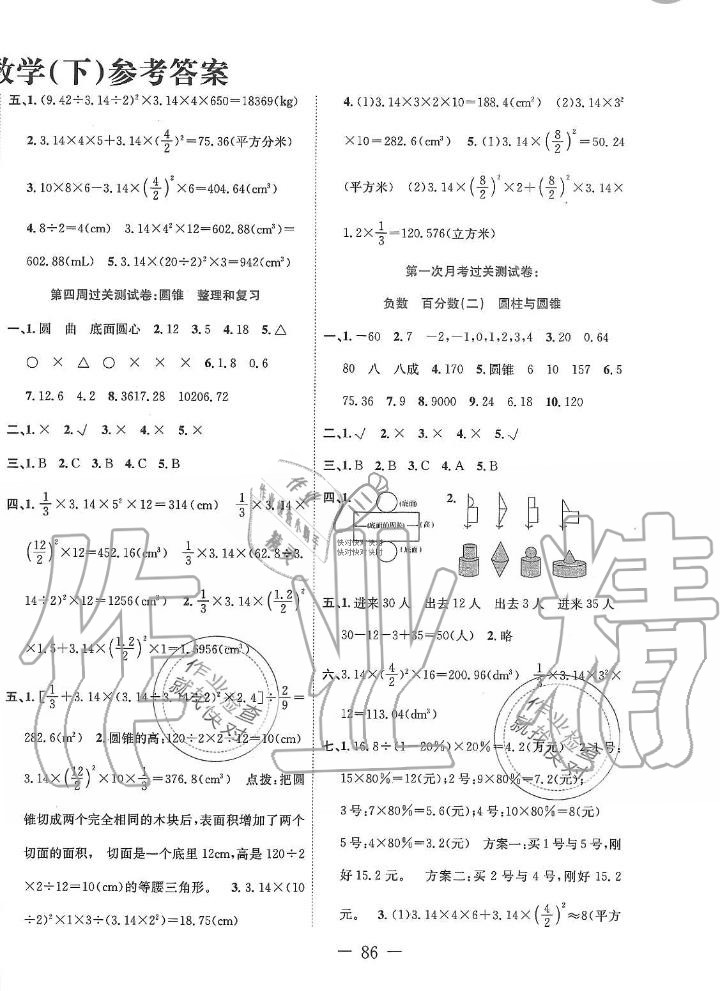 数学(下)参考答案
五、1. (9.42÷3.14÷2)²×3.14×4×650=18369(kg)
2. 3.14×4×5+3.14×(4/2)²=75.36(平方分米)
3. 10×8×6-3.14×(4/2)²×6=404.64(cm³)
4. 8÷2=4(cm) 3.14×4²×12=602.88(cm³)=
602.88(mL) 5. 3.14×(20÷2)²×3=942(cm³)
第四周过关测试卷:圆锥 整理和复习
一、1. 圆 曲 底面圆心 2. 12 3. 5 4. 18 5. △
○ × △ ○ × ○ × 6. 1.8 0.6
7. 12.6 4.2 8. 3617.28 10206.72
二、1. × 2. √ 3. × 4. × 5. ×
三、1. B 2. C 3. C 4. C 5. B
四、1. 1/3×3.14×5²×12=314(cm) 1/3×3.14×
(12/2)²×12=452.16(cm³) 1/3×3.14×(62.8÷3.
14÷2)²×12=1256(cm³) 2. 1/3×3.14×(1.2/2)²
×1.5+3.14×(1.2/2)²×1=1.6956(cm³)
五、1. [1/3+3.14×(3.14÷2)²×2.4]÷2/9=
282.6(m²) 2. 圆锥的高:120÷2×2÷12=10(cm)
3.14×(12/2)²×10×1/3=376.8(cm³) 点拨:把圆
锥切成两个完全相同的木块后,表面积增加了两个
切面的面积, 切面是一个底里12cm,高是120÷2
×2÷12=10(cm)的等腰三角形。 3. 3.14×(10
÷2)²×1×3÷(3.14×2²)=18.75(cm)
4. (1)3.14×3×2×10=188.4(cm²) (2)3.14×3²
×10=282.6(cm³) 5. (1)3.14×(8/2)²=50.24
(平方米) (2)3.14×(8/2)²×2+(8/2)²×3.14×
1.2×1/3=120.576(立方米)
第一次月考过关测试卷:
负数 百分数(二) 圆柱与圆锥
一、1. -60 2. 7 -2,-1,0,1,2,3,4 3. 20 0.64
80 八 八成 4. 170 5. 圆锥 6 10 157 6. 5
75.36 7. 9 8. 9000 9. 24 6.18 10. 120
二、1. √ 2. × 3. × 4. × 5. √
三、1. B 2. C 3. A 4. B 5. B
四、1. (底面) 2.
(底面的周长) (高)
快对快对快时
快对快对快时 (底面)
五、1. 进来30人 出去12人 出去3人 进来35人
30-12-3+35=50(人) 2. 略
六、3.14×(4/2)²×16=200.96(dm³) 1/3×3.14×3²×
12=113.04(dm³)
七、1. 16.8÷(1-20%)×20%=4.2(万元) 2. 1号:
15×80%=12(元);2号:9×80%=7.2(元);
3号:7×80%=5.6(元);4号:10×80%=8(元)
5号:4×80%=3.2(元) 方案一:买1号与5号,刚
好15.2元。 方案二:买2号与4号,刚好15.2
元。 3. (1)3.14×4×6+3.14×(4/2)²≈8(平方
— 86 —
作业精
作业检查
就找快对
作业检查
就找快对